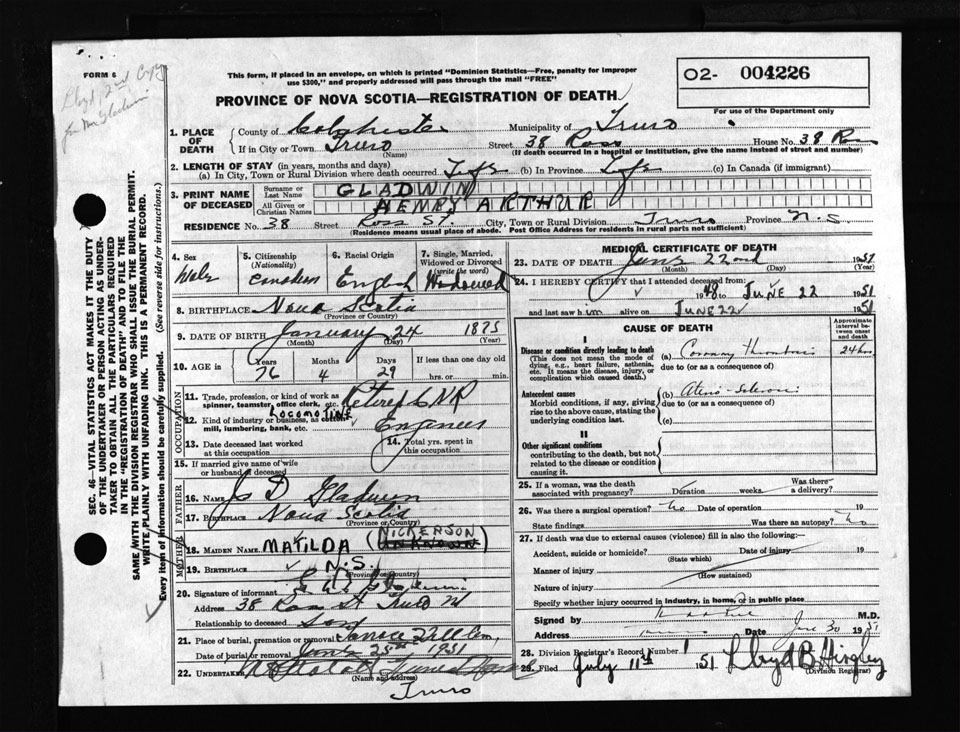 FORM 6
Lloyd, 2nd Copy
for Mr Gladwin
This form, if placed in an envelope, on which is printed "Dominion Statistics—Free, penalty for improper
use $300," and properly addressed will pass through the mail "FREE"
02- 004226
For use of the Department only
PROVINCE OF NOVA SCOTIA—REGISTRATION OF DEATH
1. PLACE OF DEATH { County of Colchester Municipality of Truro
If in City or Town Truro (Name) Street 38 Ross House No. 38
(If death occurred in a hospital or institution, give the name instead of street and number)
2. LENGTH OF STAY (in years, months and days)
(a) In City, Town or Rural Division where death occurred Life (b) In Province Life (c) In Canada (if immigrant)
3. PRINT NAME OF DECEASED { Surname or Last Name GLADWIN
All Given or Christian Names HENRY ARTHUR
RESIDENCE No. 38 Street Ross St. City, Town or Rural Division Truro Province N.S
(Residence means usual place of abode. Post Office Address for residents in rural parts not sufficient)
4. Sex Male
5. Citizenship (Nationality) Canadian
6. Racial Origin English
7. Single, Married, Widowed or Divorced (write the word) Widowed
8. BIRTHPLACE Nova Scotia
(Province or Country)
9. DATE OF BIRTH January 24 1875
(Month) (Day) (Year)
10. AGE in Years Months Days If less than one day old
76 4 29 hrs. or min.
OCCUPATION
11. Trade, profession, or kind of work as spinner, teamster, office clerk, etc. Retired CNR
12. Kind of industry or business, as cotton mill, lumbering, bank, etc. Locomotive Engineer
13. Date deceased last worked at this occupation
14. Total yrs. spent in this occupation
15. If married give name of wife or husband of deceased
FATHER
16. Name Js D Gladwin
17. Birthplace Nova Scotia
(Province or Country)
MOTHER
18. Maiden Name MATILDA (NICKERSON UNKNOWN)
19. Birthplace N.S.
(Province or Country)
20. Signature of informant
Address 38 Ross St Truro NS
Relationship to deceased Son
21. Place of burial, cremation or removal Terrace Hill Cem,
Date of burial or removal June 25th 1951
22. Undertaker
(Name and address)
Truro
MEDICAL CERTIFICATE OF DEATH
23. DATE OF DEATH June 22nd 1951
(Month) (Day) (Year)
24. I HEREBY CERTIFY that I attended deceased from
1948 to JUNE 22 1951
and last saw him alive on JUNE 22 1951
CAUSE OF DEATH
Approximate interval between onset and death
I
Disease or condition directly leading to death
(This does not mean the mode of dying, e.g., heart failure, asthenia, etc. It means the disease, injury, or complication which caused death.)
(a) Coronary Thrombosis 24 hrs
due to (or as a consequence of)
Antecedent causes
Morbid conditions, if any, giving rise to the above cause, stating the underlying condition last.
(b) Arterio-Sclerosis
due to (or as a consequence of)
(c)
II
Other significant conditions
contributing to the death, but not related to the disease or condition causing it.
25. If a woman, was the death associated with pregnancy? Duration weeks. Was there a delivery?
26. Was there a surgical operation? No Date of operation 19
State findings Was there an autopsy? No
27. If death was due to external causes (violence) fill in also the following:
Accident, suicide or homicide? Date of injury 19
(State which)
Manner of injury
(How sustained)
Nature of injury
Specify whether injury occurred in industry, in home, or in public place
Signed by M.D.
Address Date June 30 1951
28. Division Registrar's Record Number 1
29. Filed July 11th 1951 Lloyd B. Hingley
(Division Registrar)
SEC. 46—VITAL STATISTICS ACT MAKES IT THE DUTY
OF THE UNDERTAKER OR PERSON ACTING AS UNDER-
TAKER TO OBTAIN ALL THE PARTICULARS REQUIRED
IN THE "REGISTRATION OF DEATH" AND TO FILE THE
SAME WITH THE DIVISION REGISTRAR WHO SHALL ISSUE THE BURIAL PERMIT.
WRITE PLAINLY WITH UNFADING INK. THIS IS A PERMANENT RECORD.
Every item of information should be carefully supplied. (See reverse side for instructions.)